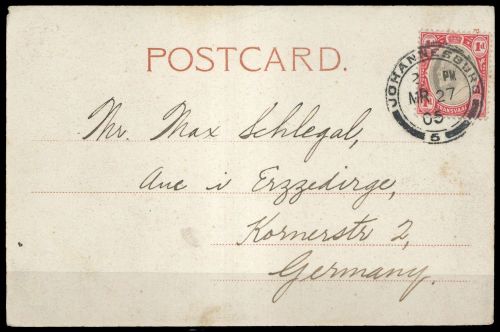 POSTCARD.
1d 1d
TRANSVAAL
JOHANNESBURG
2 PM
MR 27
05
5
Mr. Max Schlegal,
Aue i Erzzedirge,
Kornerstr 2,
Germany.